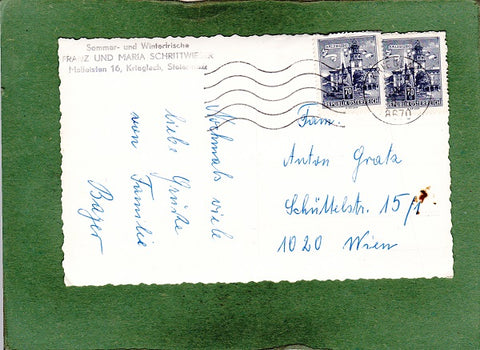 Sommer- und Winterfrische
FRANZ UND MARIA SCHRITTWIESER
Malleisten 16, Krieglach, Steiermark
Nochmals viele
liebe Grüße
von Familie
Bayer
SALZBURG
70
REPUBLIK ÖSTERREICH
SALZBURG
70
REPUBLIK ÖSTERREICH
8670
Fam.
Anton Gratz
Schüttelstr. 15/1
1020 Wien